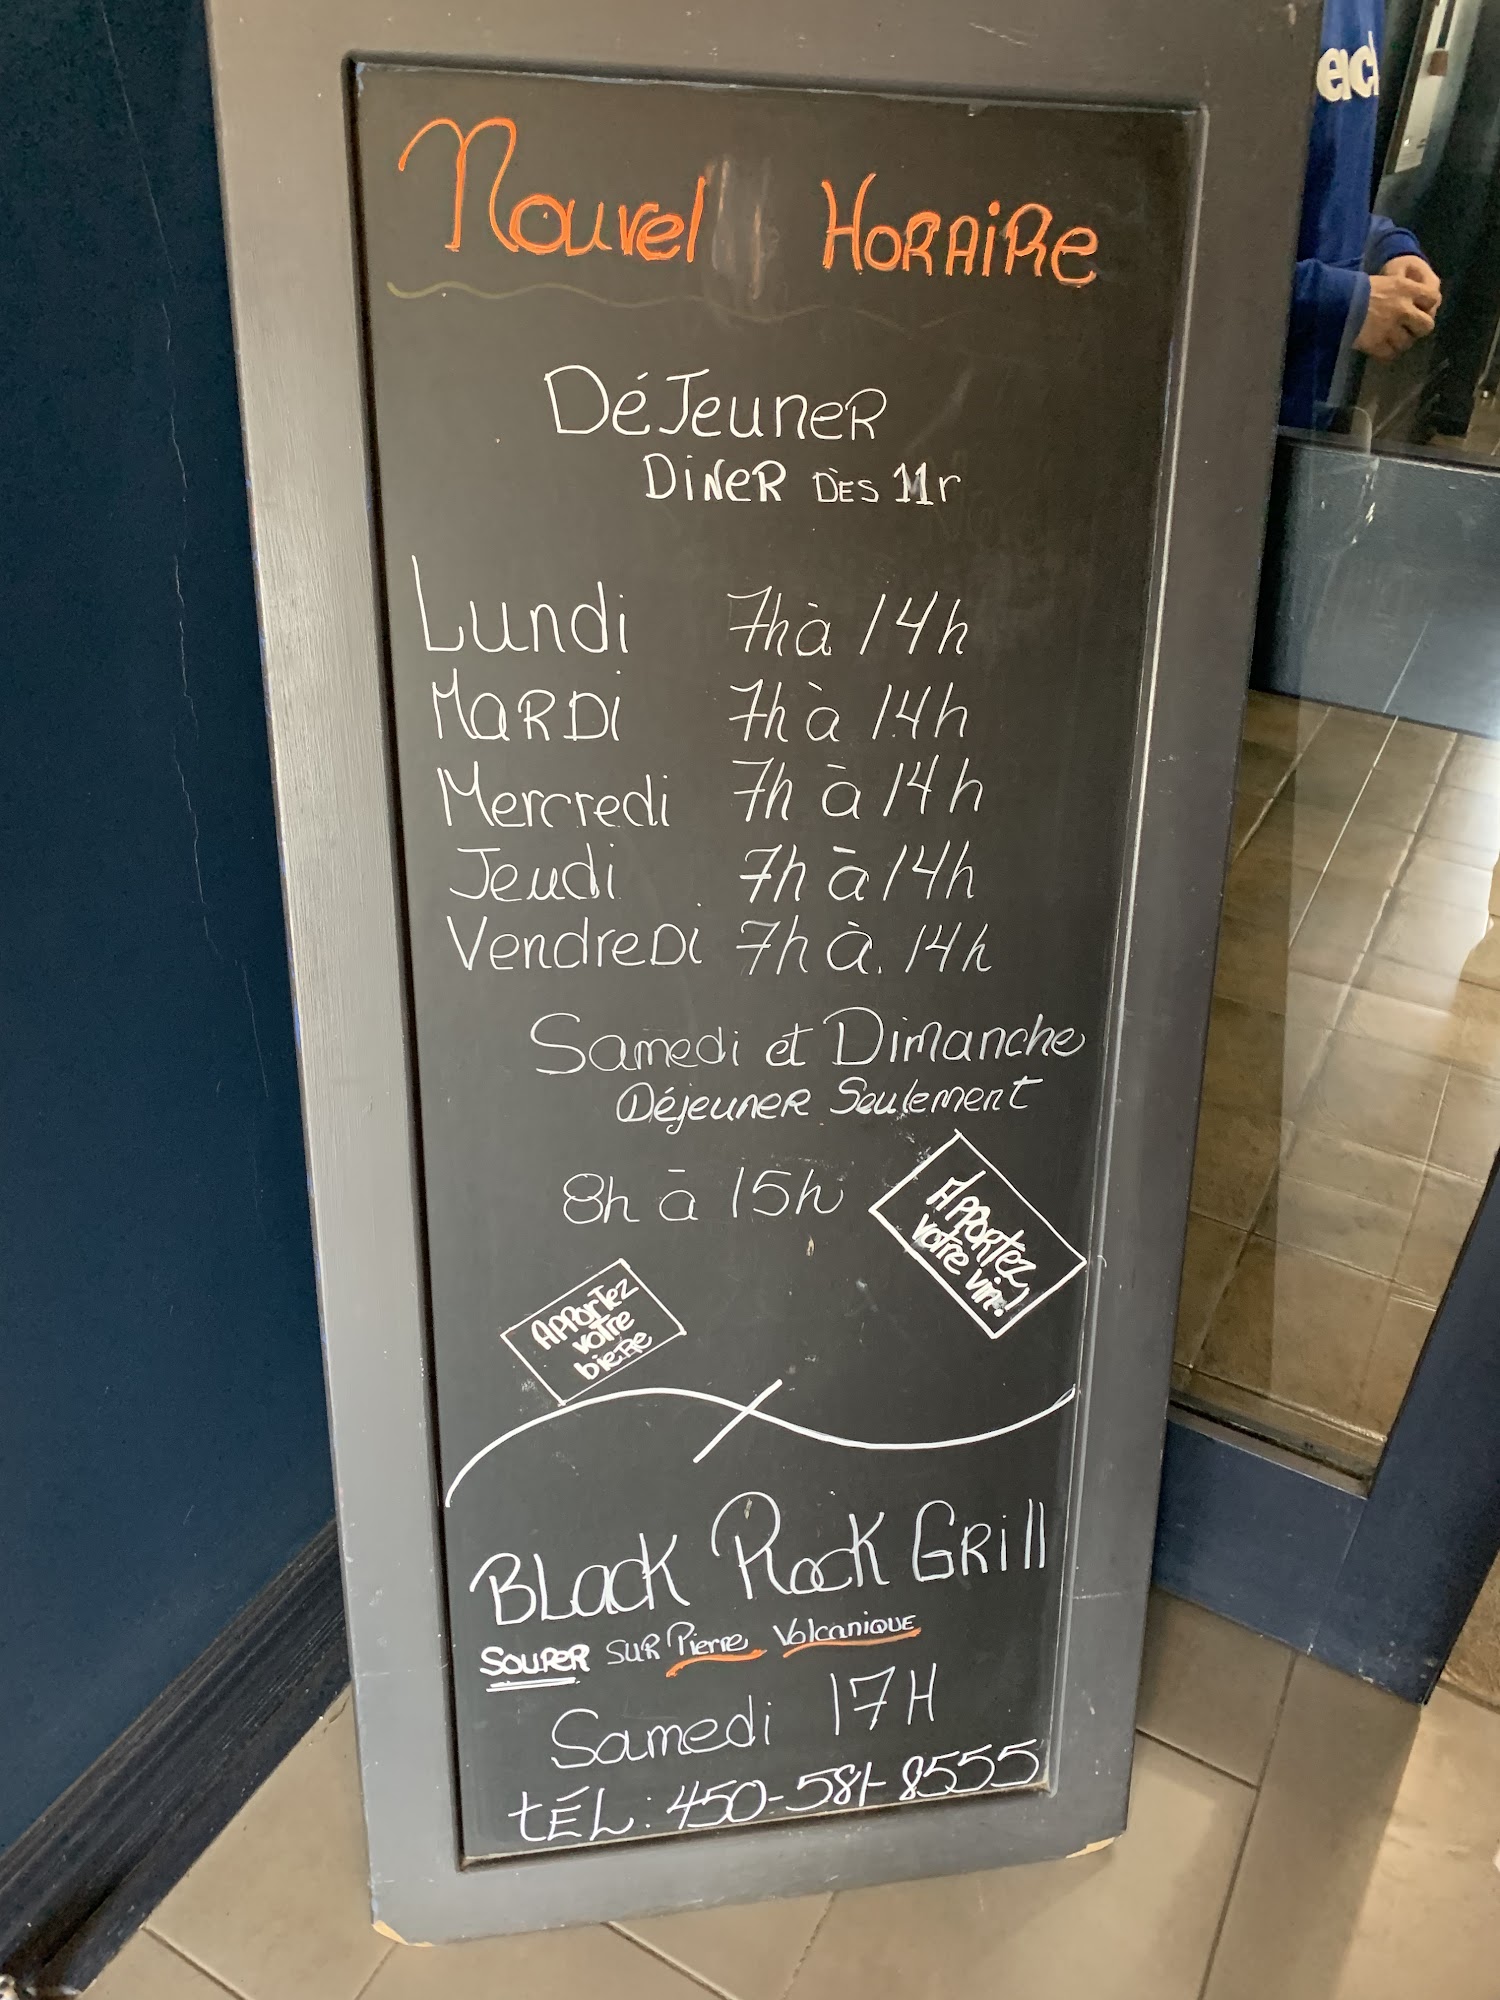 Nouvel HORAIRE
DéJeuneR
DiNeR DÈS 11r
Lundi 7h à 14h
MaRDi 7h à 14h
Mercredi 7h à 14h
Jeudi 7h à 14h
VendreDi 7h à 14h
Samedi et Dimanche
DéjeuneR Seulement
8h à 15h
APPORTez
votre vin!
APPORTez
votre
bieRe
BLack Rock GRill
SOUPER SUR Pierre VolcaniQUE
Samedi 17H
tÉL: 450-581-8555